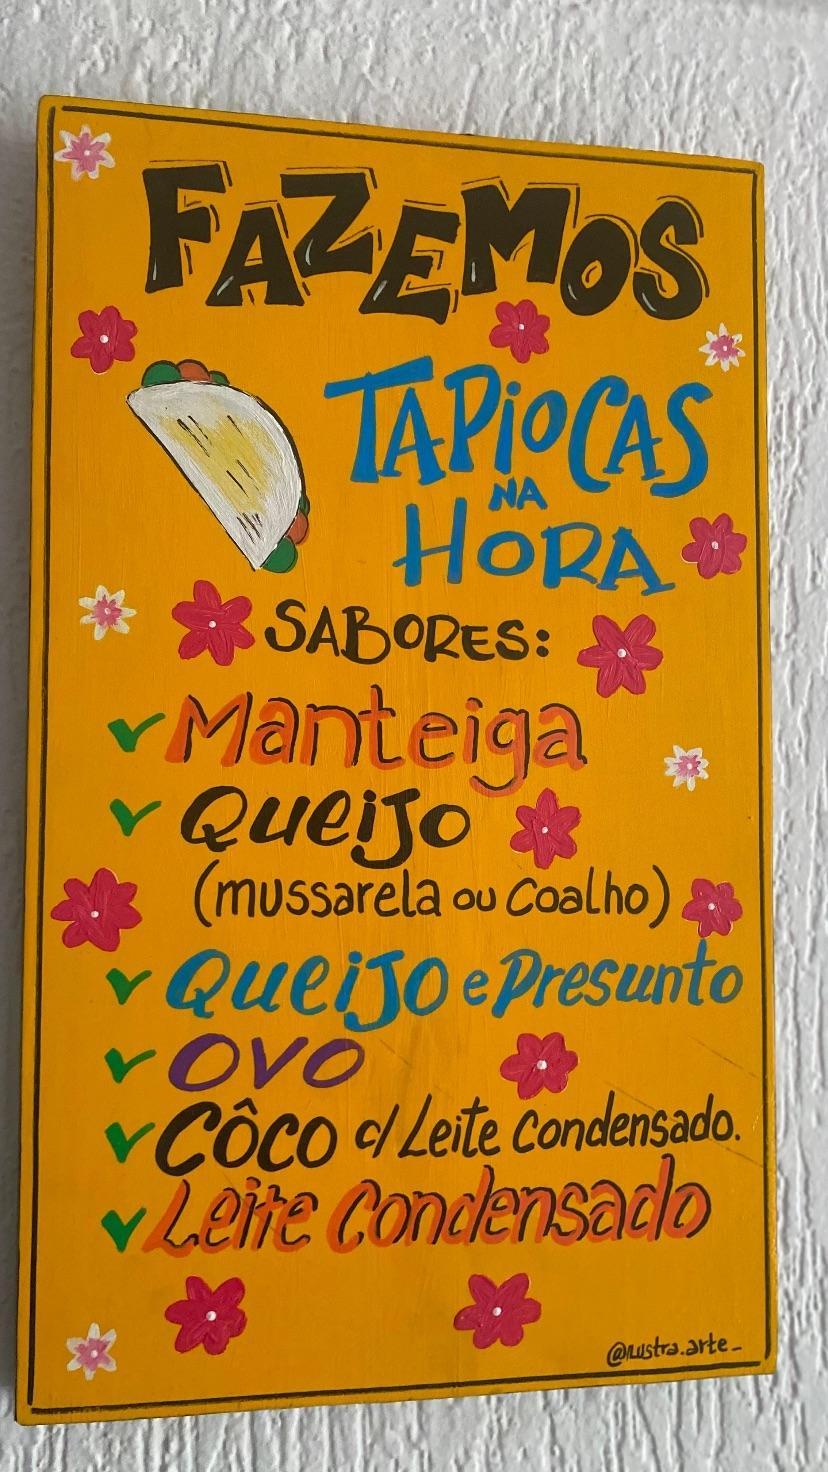 FAZEMOS
TAPiOCAS
NA
HORA
SABORES:
Manteiga
QueiJo
(mussarela ou Coalho)
QueiJo e Presunto
OVO
CÔCO c/ Leite Condensado.
Leite Condensado
@ilustra.arte_